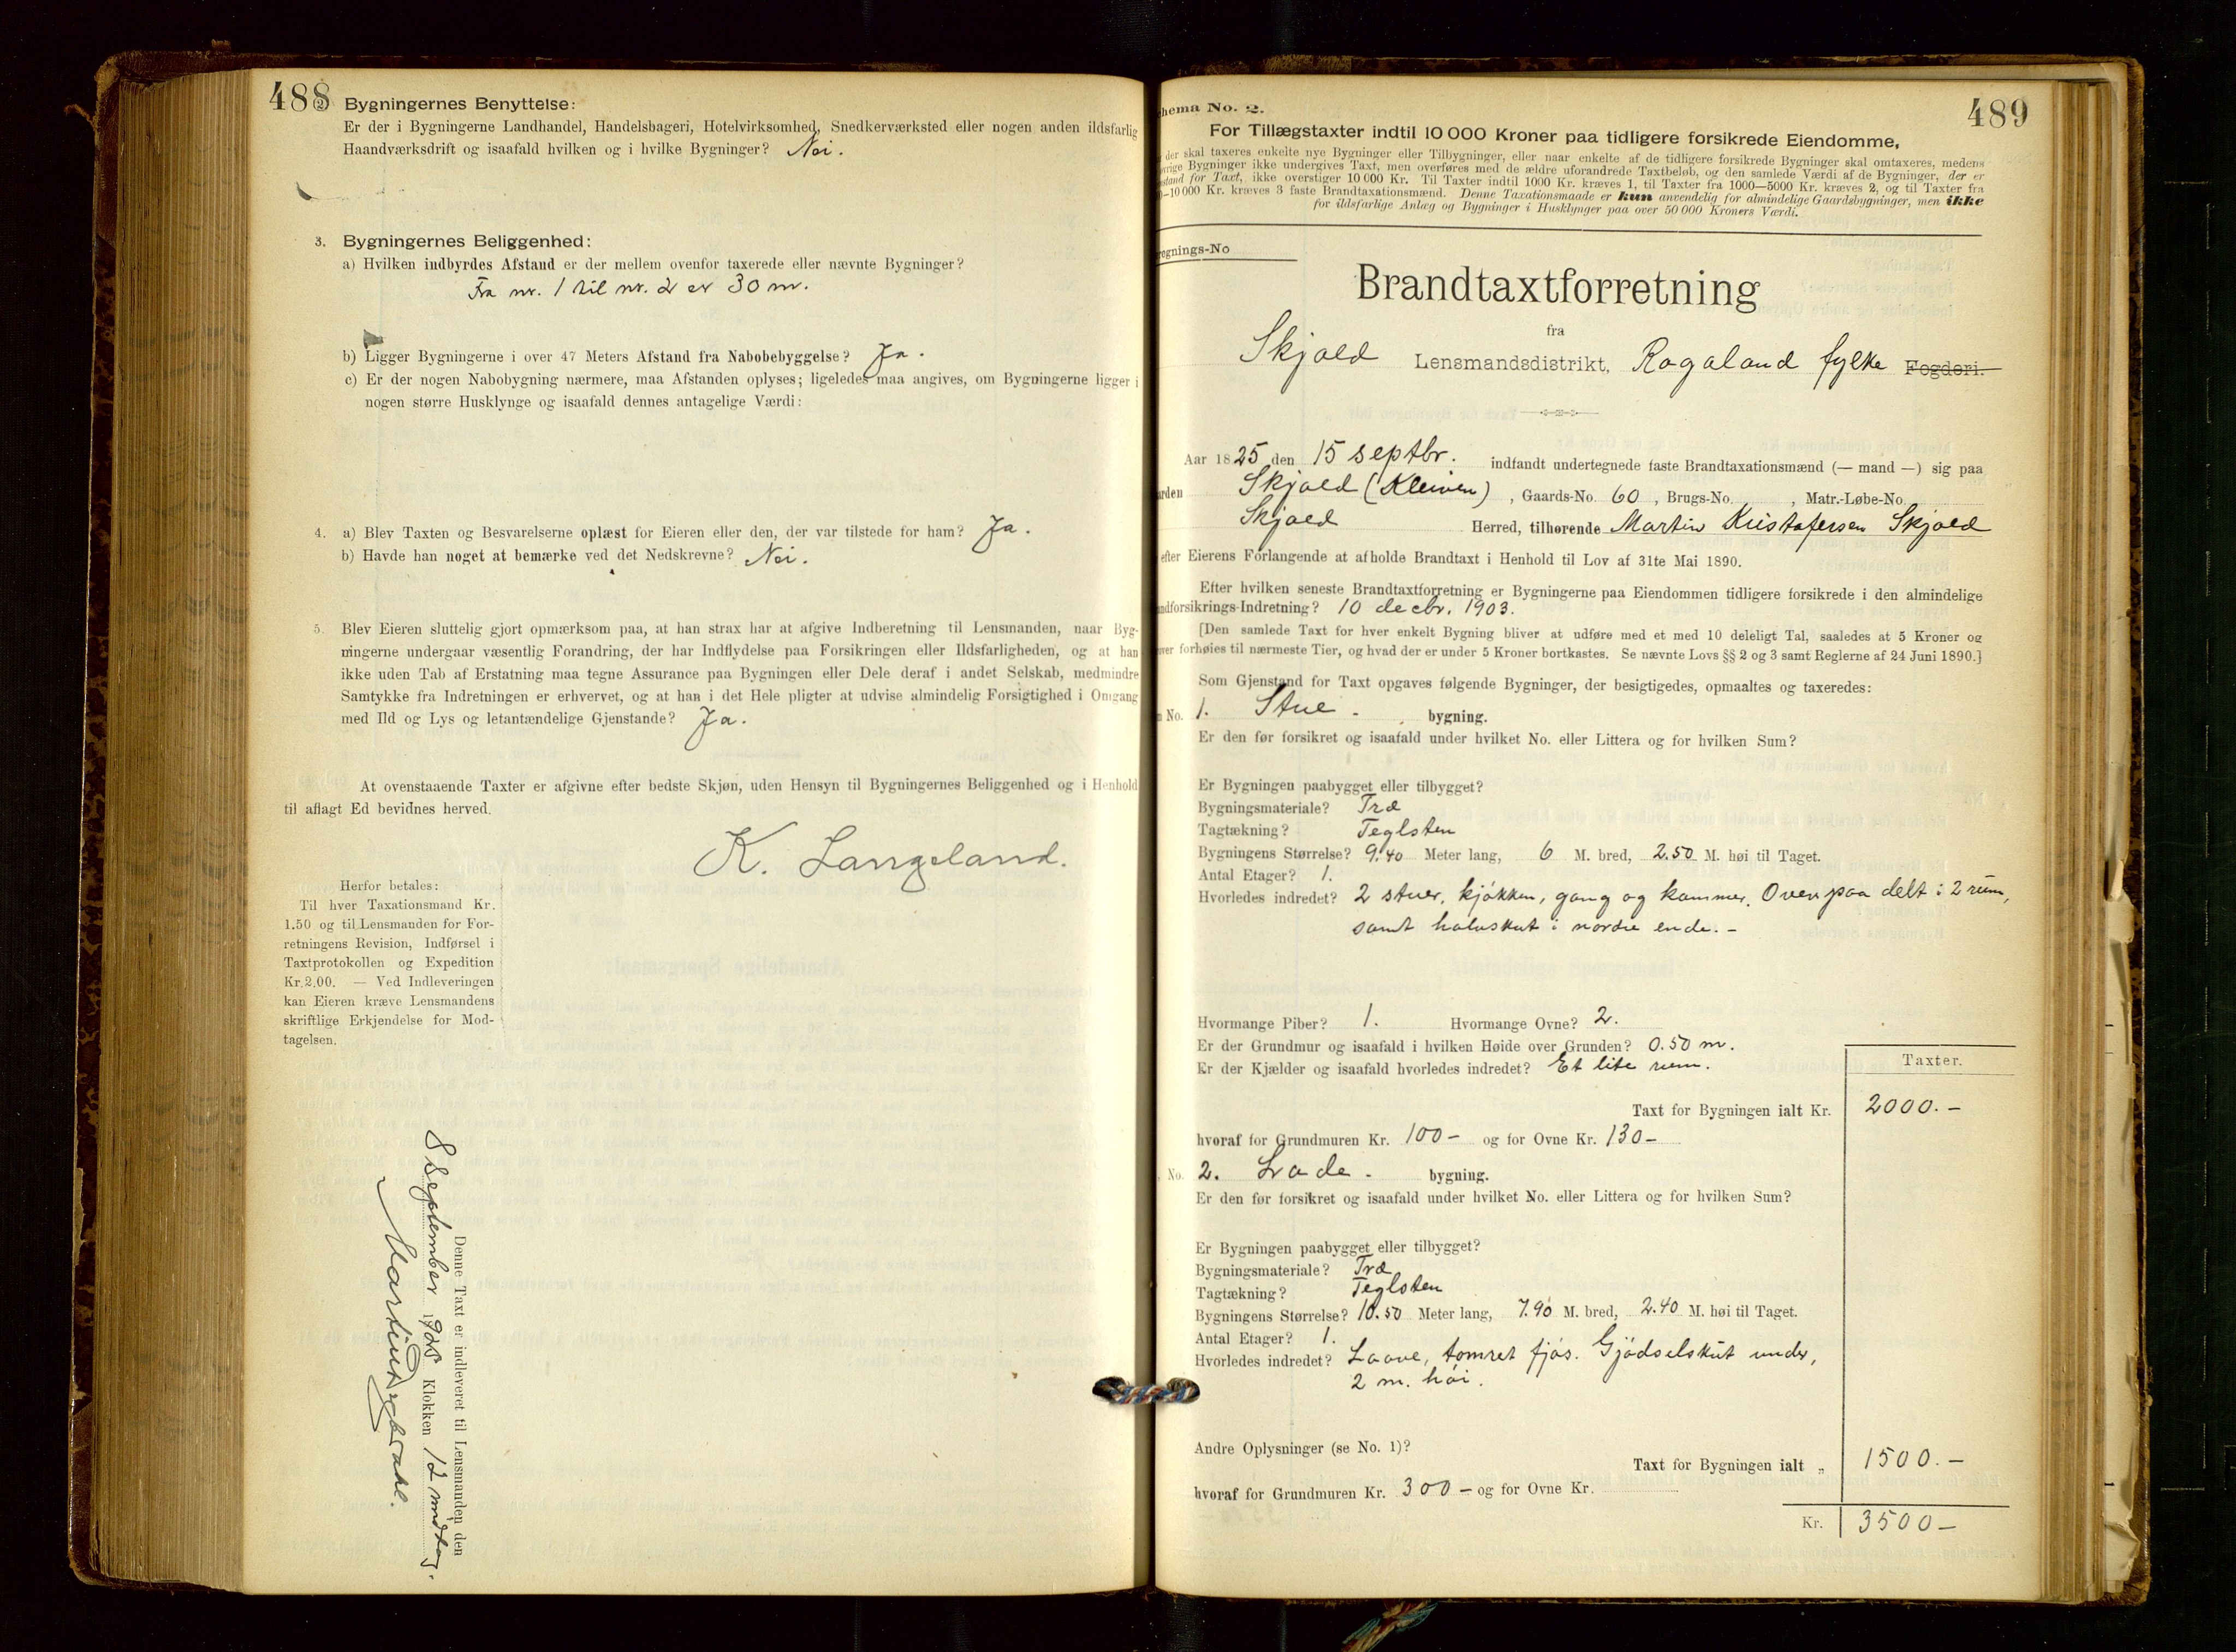 488
2. Bygningernes Benyttelse:
Er der i Bygningerne Landhandel, Handelsbageri, Hotelvirksomhed, Snedkerværksted eller nogen anden ildsfarlig
Haandværksdrift og isaafald hvilken og i hvilke Bygninger? Nei.
3. Bygningernes Beliggenhed:
a) Hvilken indbyrdes Afstand er der mellem ovenfor taxerede eller nævnte Bygninger?
Fra nr. 1 til nr. 2 er 30 m.
b) Ligger Bygningerne i over 47 Meters Afstand fra Nabobebyggelse? Ja.
c) Er der nogen Nabobygning nærmere, maa Afstanden oplyses; ligeledes maa angives, om Bygningerne ligger i
nogen større Husklynge og isaafald dennes antagelige Værdi:
4. a) Blev Taxten og Besvarelserne oplæst for Eieren eller den, der var tilstede for ham? Ja.
b) Havde han noget at bemærke ved det Nedskrevne? Nei.
5. Blev Eieren sluttelig gjort opmærksom paa, at han strax har at afgive Indberetning til Lensmanden, naar Byg-
ningerne undergaar væsentlig Forandring, der har Indflydelse paa Forsikringen eller Ildsfarligheden, og at han
ikke uden Tab af Erstatning maa tegne Assurance paa Bygningen eller Dele deraf i andet Selskab, medmindre
Samtykke fra Indretningen er erhvervet, og at han i det Hele pligter at udvise almindelig Forsigtighed i Omgang
med Ild og Lys og letantændelige Gjenstande? Ja.
At ovenstaaende Taxter er afgivne efter bedste Skjøn, uden Hensyn til Bygningernes Beliggenhed og i Henhold
til aflagt Ed bevidnes herved.
K. Langeland.
Herfor betales:
Til hver Taxationsmand Kr.
1.50 og til Lensmanden for For-
retningens Revision, Indførsel i
Taxtprotokollen og Expedition
Kr. 2.00. — Ved Indleveringen
kan Eieren kræve Lensmandens
skriftlige Erkjendelse for Mod-
tagelsen.
Denne Taxt er indleveret til Lensmanden den
8 September 1925 Klokken 12 middag.
489
hema No. 2.
For Tillægstaxter indtil 10 000 Kroner paa tidligere forsikrede Eiendomme,
der skal taxeres enkelte nye Bygninger eller Tilbygninger, eller naar enkelte af de tidligere forsikrede Bygninger skal omtaxeres, medens
øvrige Bygninger ikke undergives Taxt, men overføres med de ældre uforandrede Taxtbeløb, og den samlede Værdi af de Bygninger, der er
stand for Taxt, ikke overstiger 10 000 Kr. Til Taxter indtil 1000 Kr. kræves 1, til Taxter fra 1000—5000 Kr. kræves 2, og til Taxter fra
0—10 000 Kr. kræves 3 faste Brandtaxationsmænd. Denne Taxationsmaade er kun anvendelig for almindelige Gaardsbygninger, men ikke
for ildsfarlige Anlæg og Bygninger i Husklynger paa over 50 000 Kroners Værdi.
egnings-No
Brandtaxtforretning
fra
Skjold Lensmandsdistrikt, Rogaland fylke Fogderi.
Aar 1825 den 15 septbr. indfandt undertegnede faste Brandtaxationsmænd (— mand —) sig paa
arden Skjold (Kleiven), Gaards-No. 60, Brugs-No. , Matr.-Løbe-No.
Skjold Herred, tilhørende Martin Kristofersen Skjold
efter Eierens Forlangende at afholde Brandtaxt i Henhold til Lov af 31te Mai 1890.
Efter hvilken seneste Brandtaxtforretning er Bygningerne paa Eiendommen tidligere forsikrede i den almindelige
ndforsikrings-Indretning? 10 decbr. 1903.
[Den samlede Taxt for hver enkelt Bygning bliver at udføre med et med 10 deleligt Tal, saaledes at 5 Kroner og
over forhøies til nærmeste Tier, og hvad der er under 5 Kroner bortkastes. Se nævnte Lovs §§ 2 og 3 samt Reglerne af 24 Juni 1890.]
Som Gjenstand for Taxt opgaves følgende Bygninger, der besigtigedes, opmaaltes og taxeredes:
No. 1. Stue. bygning.
Er den før forsikret og isaafald under hvilket No. eller Littera og for hvilken Sum?
Er Bygningen paabygget eller tilbygget?
Bygningsmateriale? Træ
Tagtækning? Teglsten
Bygningens Størrelse? 9.40 Meter lang, 6 M. bred, 2.50 M. høi til Taget.
Antal Etager? 1.
Hvorledes indredet? 2 stuer, kjøkken, gang og kammer. Ovenpaa delt i 2 rum,
samt halvskut i nordre ende. –
Hvormange Piber? 1. Hvormange Ovne? 2.
Er der Grundmur og isaafald i hvilken Høide over Grunden? 0.50 m.
Er der Kjælder og isaafald hvorledes indredet? Et lite rum.
Taxter.
Taxt for Bygningen ialt Kr. 2000.–
hvoraf for Grundmuren Kr. 100– og for Ovne Kr. 130–
No. 2. Lade. bygning.
Er den før forsikret og isaafald under hvilket No. eller Littera og for hvilken Sum?
Er Bygningen paabygget eller tilbygget?
Bygningsmateriale? Træ
Tagtækning? Teglsten
Bygningens Størrelse? 10.50 Meter lang, 7.90 M. bred, 2.40 M. høi til Taget.
Antal Etager? 1.
Hvorledes indredet? Laave, tømret fjøs. Gjødselskut under,
2 m. høi.
Andre Oplysninger (se No. 1)?
Taxt for Bygningen ialt „ 1500.–
hvoraf for Grundmuren Kr. 300– og for Ovne Kr.
Kr. 3500–